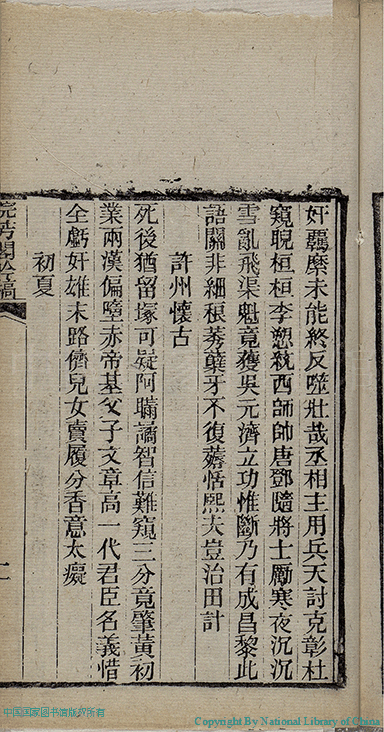 奸羈縻未能終反噬壯哉丞相主用兵天討克彰杜
窺睨桓桓李愬統西師帥唐鄧隨將士勵寒夜沉沉
雪亂飛渠魁竟獲吳元濟立功惟斷乃有成昌黎此
語關非細根莠蘖牙不復薅恬熙夫豈治田計
許州懷古
死後猶留塚可疑阿瞞譎智信難窺三分竟肇黃初
業兩漢偏墮赤帝基父子文章高一代君臣名義惜
全虧奸雄末路儕兒女賣履分香意太癡
初夏
閣吟稿
中国国家图书馆版权所有
Copyright By National Library of China